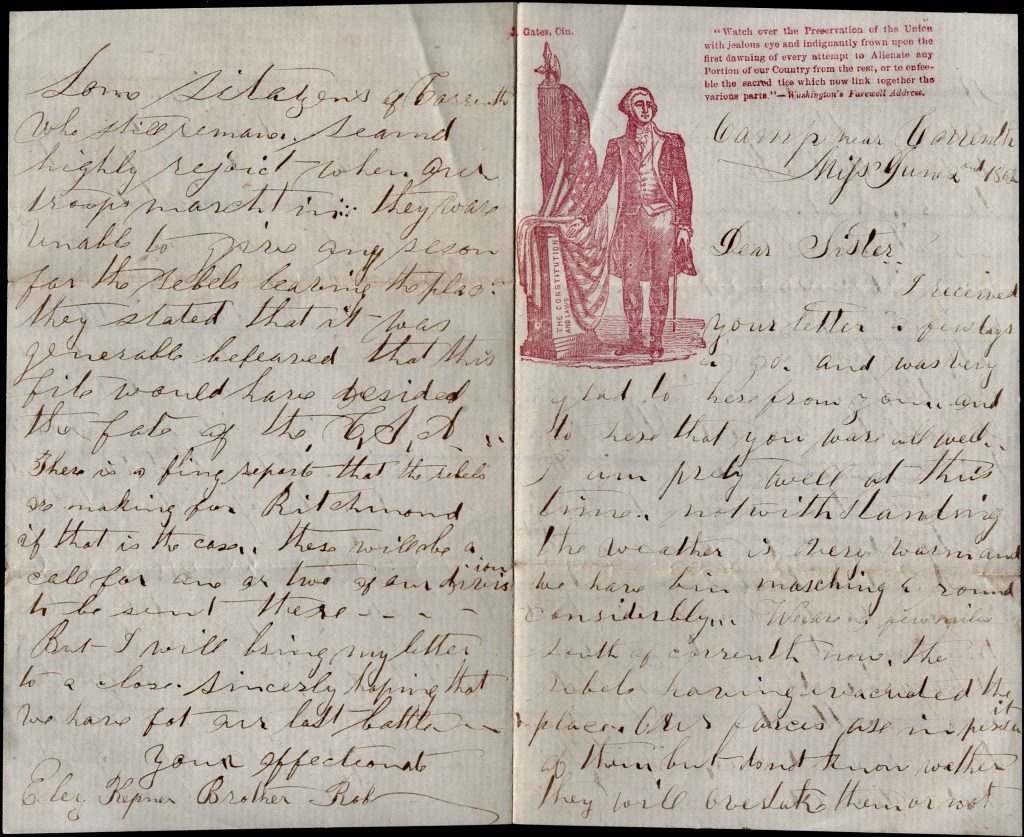 J. Gates, Cin.
"Watch over the Preservation of the Union
with jealous eye and indignantly frown upon the
first dawning of every attempt to Alienate any
Portion of our Country from the rest, or to enfee-
ble the sacred ties which now link together the
various parts."—Washington's Farewell Address.
THE CONSTITUTION
AND LAWS
Camp near Correnth
Miss June 2nd 1862
Dear Sister.
I received
your letter a few days
a go. and was very
glad to here from you. and
to here that you ware all well.
I am prety well at this
time. notwithstanding
the weather is very warm and
we have bin marching a round
considerbly.. We are a few miles
south of correnth now. the
rebels having evacuded the
place. Our forces are in persuit
of them but do not know wether
they will overtake them or not
Some Sitazens of Correnth
who still remane. seamd
highly rejoict when our
troops march in: they ware
unable to give any reson
for the rebels leaving the place.
they stated that it was
generable beleaved that this
fite would have desided
the fate of the C. S. A..
there is a fling report that the rebels
are making for Ritchmond
if that is the case.. there will be a
call for one or two of our division
to be sent there - - - -
But I will bring my letter
to a close. sincerly hoping that
we have fot our last battle
your affectionate
Eley Kepner Brother Rob